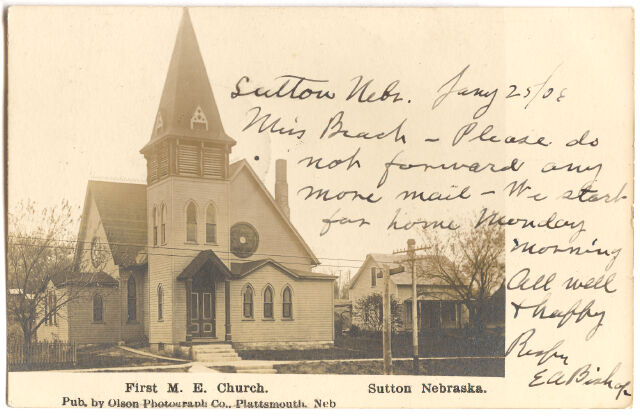 Sutton Nebr. Jany 25/08
Miss Beach – Please do
not forward any
more mail – We start
for home Monday
Morning
All well
& happy
Respy
E A Bishop
First M. E. Church. Sutton Nebraska.
Pub. by Olson Photograph Co., Plattsmouth, Neb